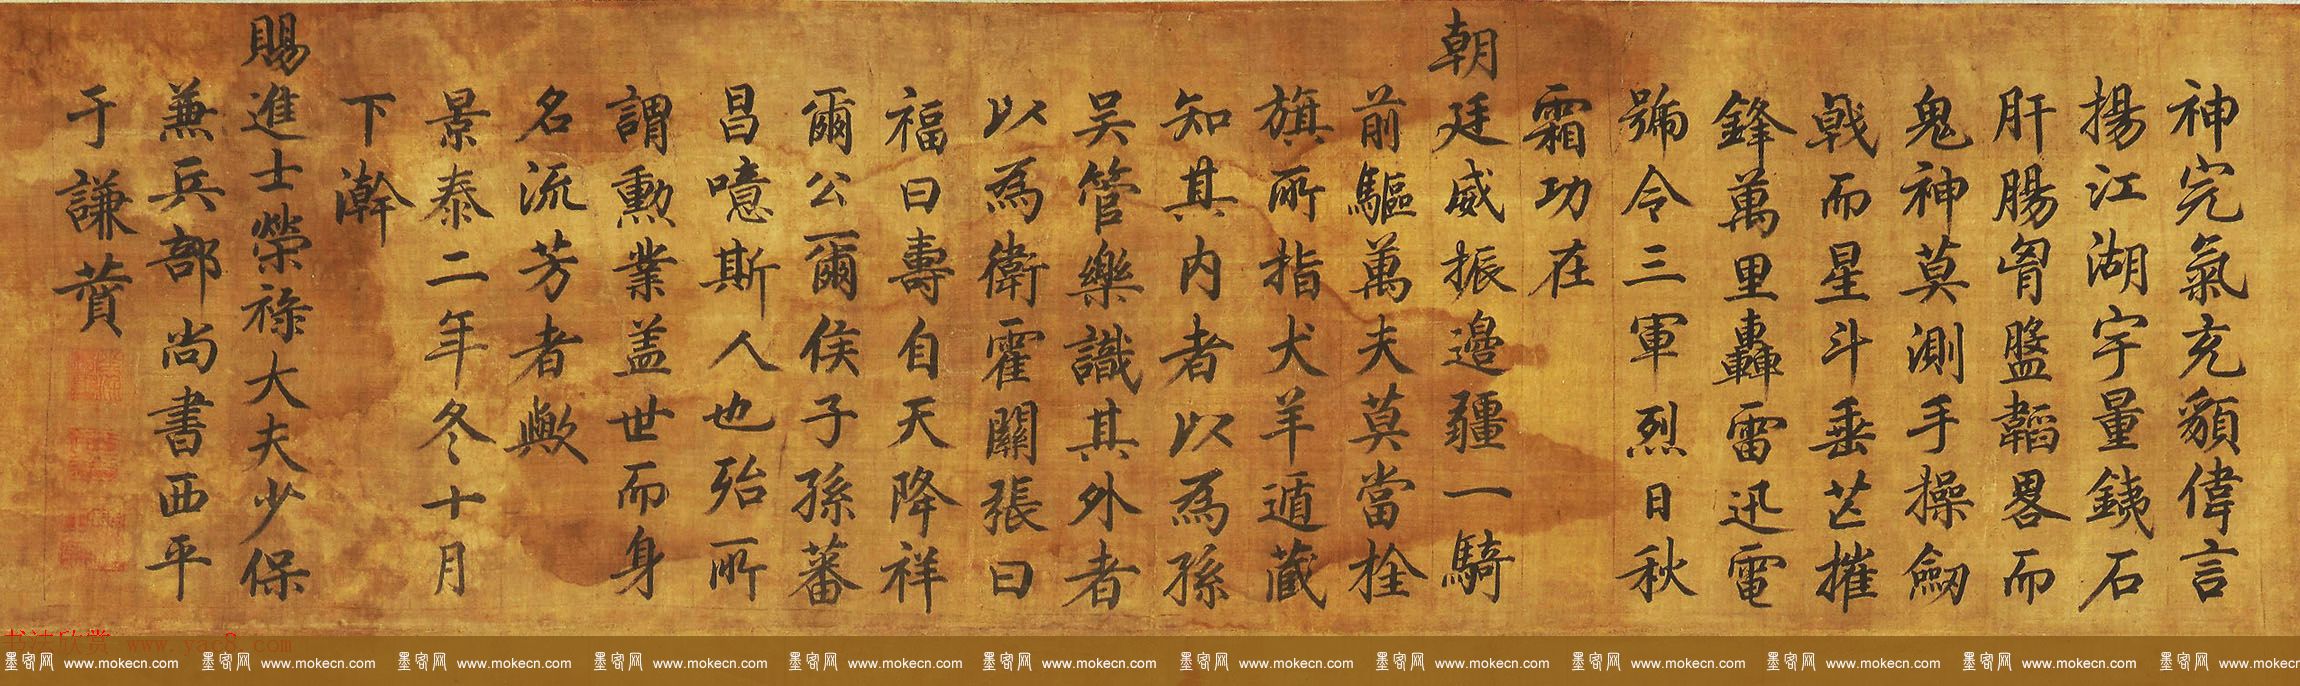 神完氣充貌偉言
揚江湖宇量銕石
肝腸胷盤韜畧而
鬼神莫測手操劒
戟而星斗垂芒摧
鋒萬里轟雷迅電
號令三軍烈日秋
霜功在
朝廷威振邊疆一騎
前驅萬夫莫當拴
旗所指犬羊遁藏
知其内者以為孫
吴管樂識其外者
以為衛霍關張曰
福曰壽自天降祥
爾公爾侯子孫蕃
昌噫斯人也殆所
謂勲業盖世而身
名流芳者歟
景泰二年冬十月
下澣
賜進士榮祿大夫少保
兼兵部尚書西平
于謙賛
书法欣赏 www.yac8.com
墨客网 www.mokecn.com 墨客网 www.mokecn.com 墨客网 www.mokecn.com 墨客网 www.mokecn.com 墨客网 www.mokecn.com 墨客网 www.mokecn.com 墨客网 www.mokecn.com 墨客网 www.mokecn.com 墨客网 www.mokecn.com 墨客网 www.mokecn.com 墨客网 www.mokecn.com 墨客网 www.mokecn